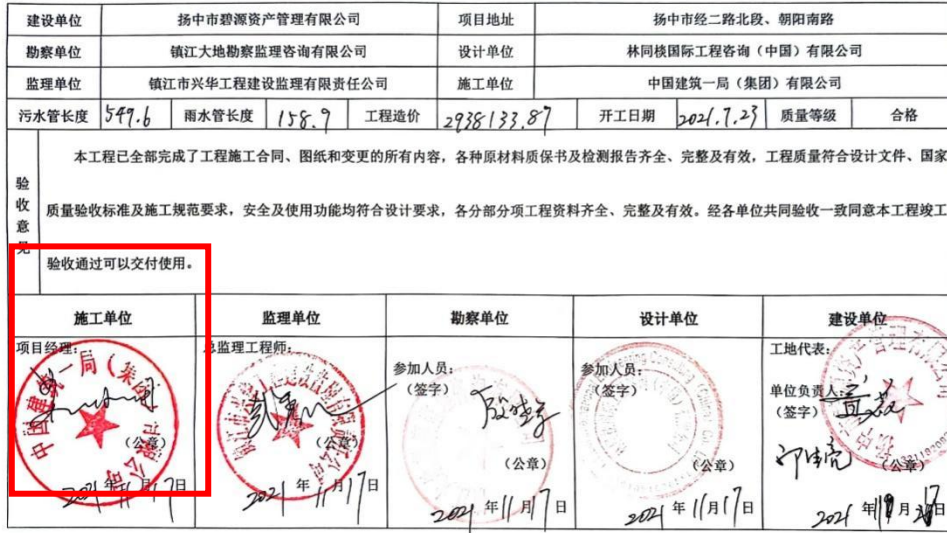 建设单位 扬中市碧源资产管理有限公司 项目地址 扬中市经二路北段、朝阳南路
勘察单位 镇江大地勘察监理咨询有限公司 设计单位 林同棪国际工程咨询（中国）有限公司
监理单位 镇江市兴华工程建设监理有限责任公司 施工单位 中国建筑一局（集团）有限公司
污水管长度 549.6 雨水管长度 158.9 工程造价 2938133.87 开工日期 2021.7.23 质量等级 合格
验收意见
本工程已全部完成了工程施工合同、图纸和变更的所有内容，各种原材料质保书及检测报告齐全、完整及有效，工程质量符合设计文件、国家
质量验收标准及施工规范要求，安全及使用功能均符合设计要求，各分部分项工程资料齐全、完整及有效。经各单位共同验收一致同意本工程竣工
验收通过可以交付使用。
施工单位 监理单位 勘察单位 设计单位 建设单位
项目经理： 总监理工程师： 工地代表：
参加人员： 参加人员：
（签字） （签字） 单位负责人：
（签字）
中国建筑一局（集团）有限公司
（公章） （公章） （公章） （公章） （公章）
2021年11月17日 2021年11月17日 2021年11月17日 2021年11月17日 2021年11月17日